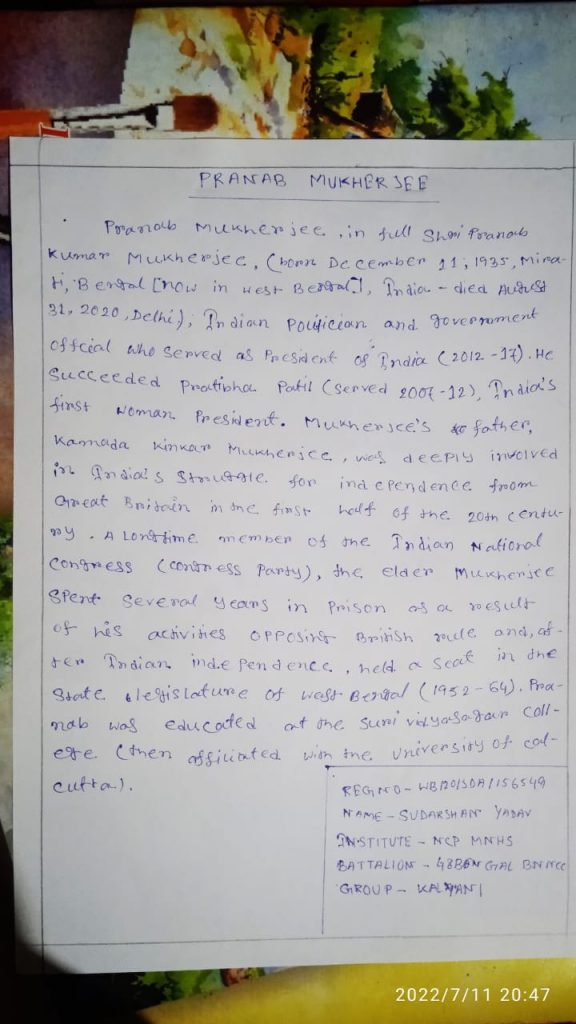 PRANAB MUKHERJEE
Pranab Mukherjee, in full Shri Pranab
Kumar Mukherjee, (born December 11, 1935, Mira-
ti, Bengal [now in West Bengal], India - died August
31, 2020, Delhi), Indian Politician and government
offcial who served as President of India (2012-17). He
succeeded Pratibha Patil (served 2007-12), India's
first woman President. Mukherjee's father,
Kamada Kinkar Mukherjee, was deeply involved
in India's struggle for independence from
Great Britain in the first half of the 20th centu-
ry. A longtime member of the Indian National
Congress (Congress Party), the elder Mukherjee
spent several years in Prison as a result
of his activities opposing British rule and, af-
ter Indian independence, held a seat in the
State legislature of West Bengal (1952-64). Pra-
nab was educated at the Suri Vidyasagar Coll-
ege (then affiliated with the University of Cal-
cutta).
REG NO - WB120/SDA/156549
NAME - SUDARSHAN YADAV
INSTITUTE - NCP MNHS
BATTALION - 48BENGAL BN NCC
GROUP - KALYANI
2022/7/11 20:47